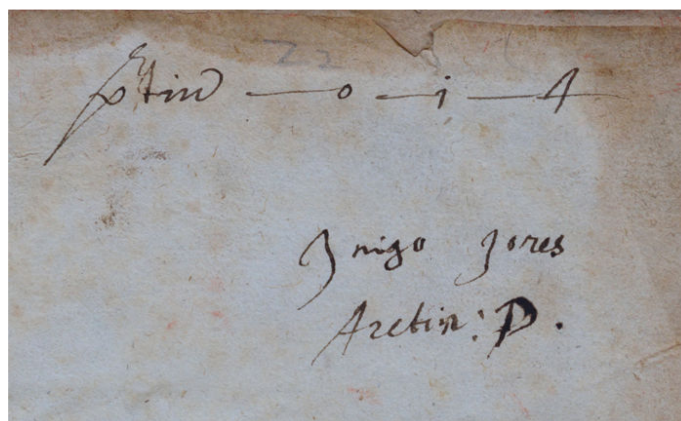 p̱tiũ — 0 — i — 4
Inigo Jones
Aretin: P.